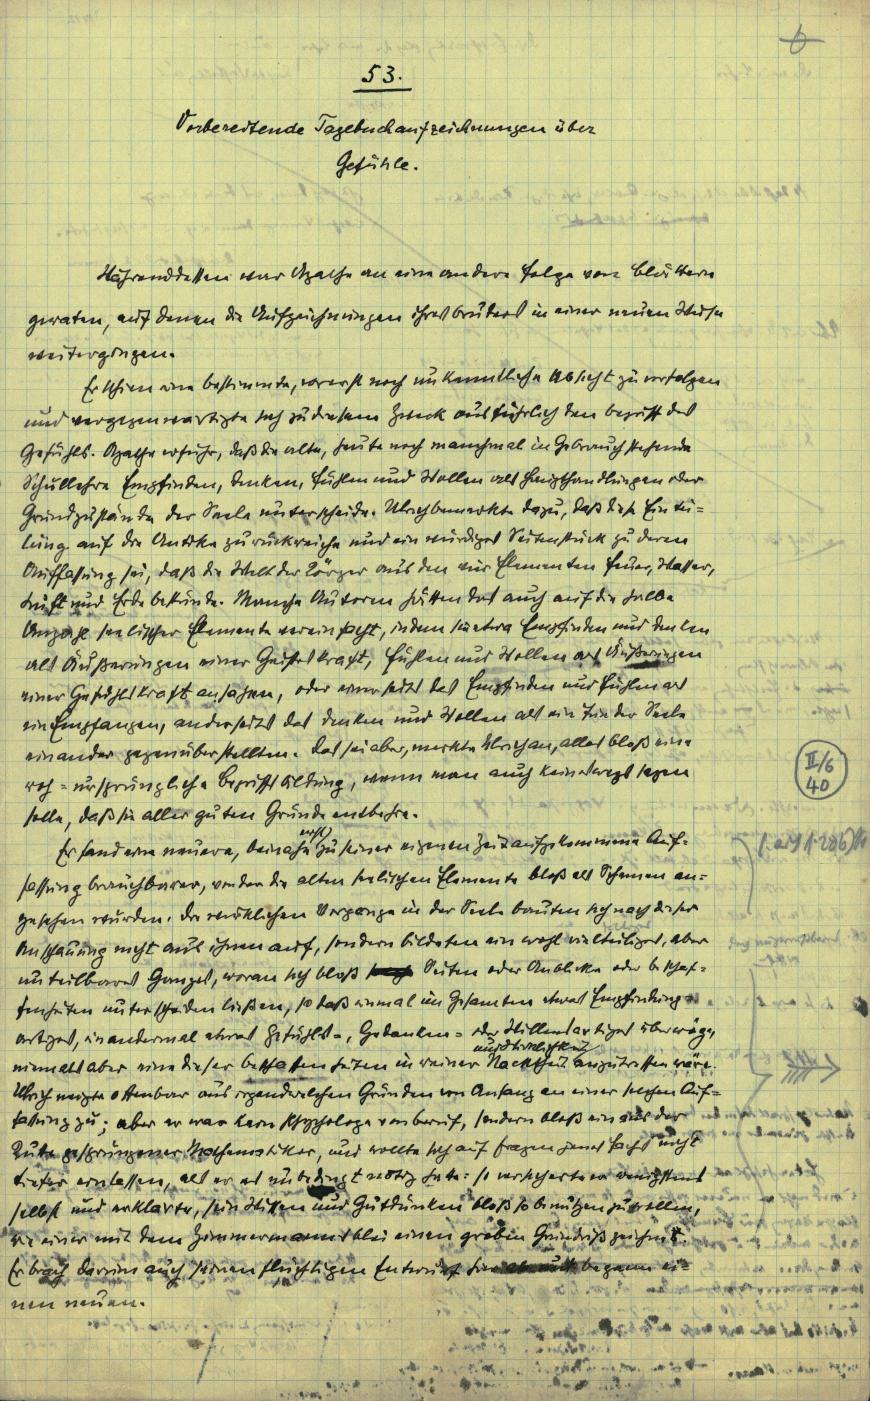 6
53.
Vorbereitende Tagebuchaufzeichnungen über
Gefühle.
Währenddessen war Agathe an eine andere Folge von Blättern
geraten, auf denen die Aufzeichnungen ihres Bruders in einer neuen Weise
weitergingen.
Er schien eine bestimmte, vorerst noch unkenntliche Absicht zu verfolgen
und vergegenwärtigte sich zu diesem Zweck ausführlich den Begriff des
Gefühls. Agathe erfuhr, daß die alte, heute noch manchmal in Gebrauch stehende
Schullehre Empfinden, Denken, Fühlen und Wollen als Haupthandlungen oder
Grundzustände der Seele unterscheide. Ulrich bemerkte dazu, daß diese Eintei=
lung auf die Antike zurückreiche und ein würdiges Seitenstück zu deren
Auffassung sei, daß die Welt der Körper aus den vier Elementen Feuer, Wasser,
Luft und Erde bestünde. Manche Autoren hätten das auch auf die halbe
Anzahl seelischer Elemente vereinfacht, indem sie etwa Empfinden und Denken
als Äußerungen einer Geisteskraft, Fühlen und Wollen als Äußerungen
einer Gefühlskraft ansahen, oder einerseits das Empfinden und Fühlen als
ein Empfangen, anderseits das Denken und Wollen als ein Tun der Seele
einander gegenüberstellten. Das sei aber, merkte Ulrich an, alles bloß eine
roh=ursprüngliche Begriffsbildung, wenn man auch keineswegs sagen
solle, daß sie aller guten Gründe entbehre.
II/6
40
Er fand eine neuere, beinahe erst zu seiner eigenen Zeit aufgekommene Auf=
fassung brauchbarer, von der die alten seelischen Elemente bloß als Schemen an=
gesehen wurden. Die wirklichen Vorgänge in der Seele bauten sich nach dieser
Anschauung nicht aus ihnen auf, sondern bildeten ein wohl vielteiliges, aber
unteilbares Ganzes, woran sich bloß Seiten oder Anblicke oder Beschaf=
fenheiten unterscheiden ließen, so daß einmal im Gesamten etwas Empfindungs=
artiges, ein andermal etwas Gefühls=, Gedanken= oder Willensartiges überwöge,
niemals aber eine dieser Beschaffenheiten in reiner Nacktheit und Wirklichkeit anzutreffen wäre.
Ulrich neigte offenbar aus irgendwelchen Gründen von Anfang an einer solchen Auf=
fassung zu; aber er war kein Psychologe von Beruf, sondern bloß ein aus der
gesprungener Mathematiker, und wollte sich auf Fragen jenes Fachs nicht
tiefer einlassen, als er es unbedingt nötig hatte: so versicherte er wenigstens
selbst und erklärte, sein Wissen und Gutdünken bloß so benützen zu wollen,
wie einer mit dem Zimmermannsblei einen groben Grundriß zeichnet.
Er brach darum auch seinen flüchtigen Entwurf begann ei=
nen neuen.